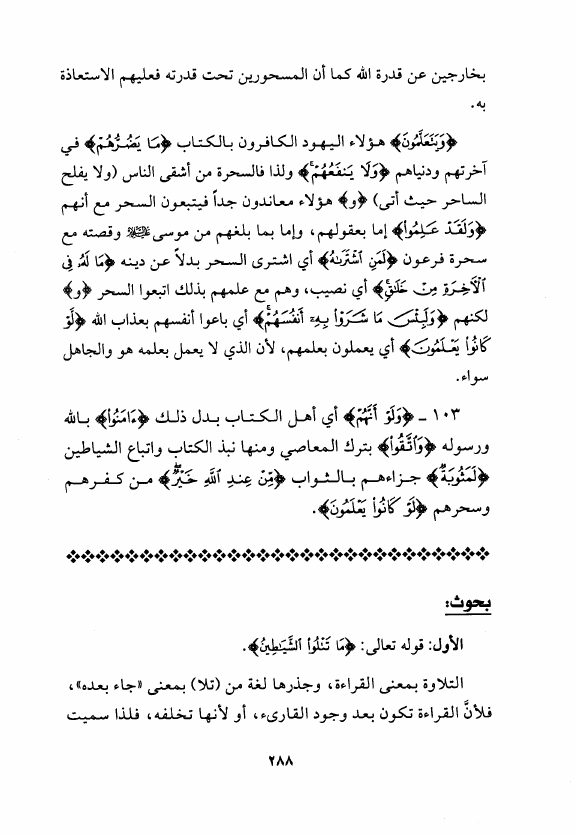 بخارجين عن قدرة الله كما أن المسحورين تحت قدرته فعليهم الاستعاذة
به.
﴿وَيَتَعَلَّمُونَ﴾ هؤلاء اليهود الكافرون بالكتاب ﴿مَا يَضُرُّهُمْ﴾ في
آخرتهم ودنياهم ﴿وَلَا يَنفَعُهُمْ﴾ ولذا فالسحرة من أشقى الناس (ولا يفلح
الساحر حيث أتى) ﴿و﴾ هؤلاء معاندون جداً فيتبعون السحر مع أنهم
﴿وَلَقَدْ عَلِمُوا۟﴾ إما بعقولهم، وإما بما بلغهم من موسى وقصته مع
سحرة فرعون ﴿لَمَنِ ٱشْتَرَىٰهُ﴾ أي اشترى السحر بدلاً عن دينه ﴿مَا لَهُۥ فِى
ٱلْـَٔاخِرَةِ مِنْ خَلَـٰقٍۚ﴾ أي نصيب، وهم مع علمهم بذلك اتبعوا السحر ﴿و﴾
لكنهم ﴿وَلَبِئْسَ مَا شَرَوْا۟ بِهِۦٓ أَنفُسَهُمْۚ﴾ أي باعوا أنفسهم بعذاب الله ﴿لَوْ
كَانُوا۟ يَعْلَمُونَ﴾ أي يعملون بعلمهم، لأن الذي لا يعمل بعلمه هو والجاهل
سواء.
١٠٣ ـ ﴿وَلَوْ أَنَّهُمْ﴾ أي أهل الكتاب بدل ذلك ﴿ءَامَنُوا۟﴾ بالله
ورسوله ﴿وَٱتَّقَوْا۟﴾ بترك المعاصي ومنها نبذ الكتاب واتباع الشياطين
﴿لَمَثُوبَةٌ﴾ جزاءهم بالثواب ﴿مِّنْ عِندِ ٱللَّهِ خَيْرٌۖ﴾ من كفرهم
وسحرهم ﴿لَوْ كَانُوا۟ يَعْلَمُونَ﴾.
بحوث:
الأول: قوله تعالى: ﴿مَا تَتْلُوا۟ ٱلشَّيَـٰطِينُ﴾.
التلاوة بمعنى القراءة، وجذرها لغة من (تلا) بمعنى «جاء بعده»،
فلأنَّ القراءة تكون بعد وجود القارىء، أو لأنها تخلفه، فلذا سميت
٢٨٨